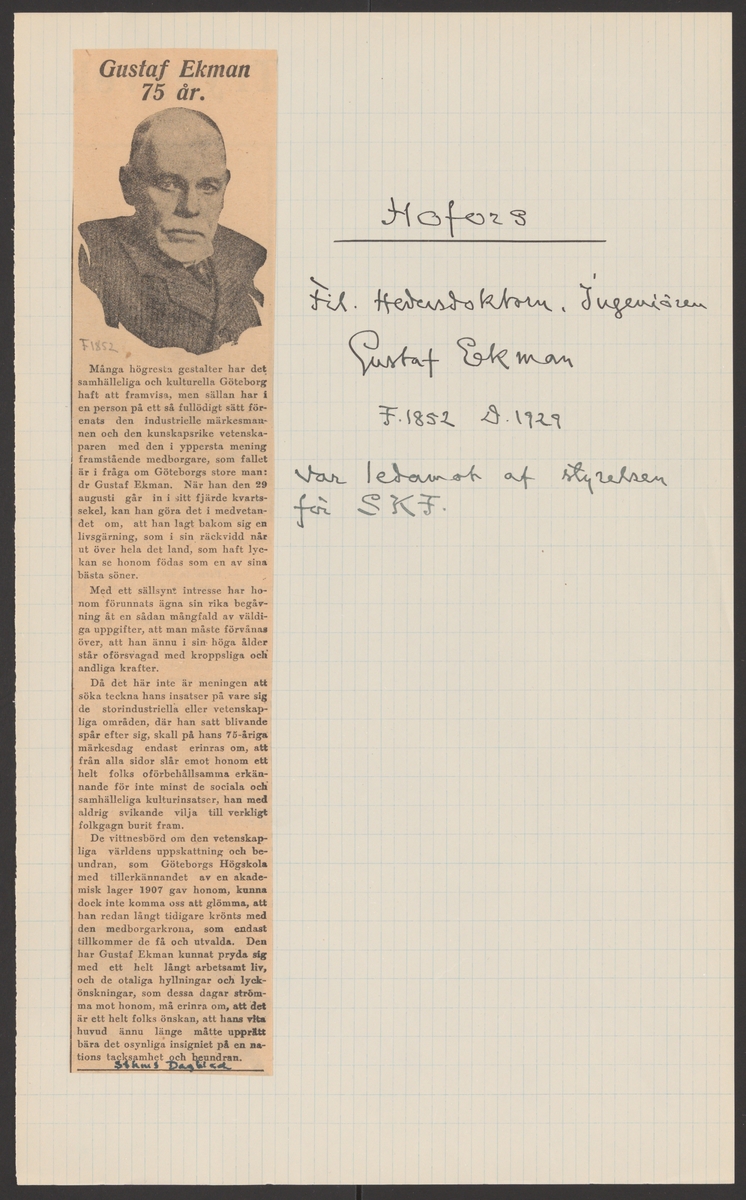 Gustaf Ekman
75 år.
F1852
Många högresta gestalter har det
samhälleliga och kulturella Göteborg
haft att framvisa, men sällan har i
en person på ett så fullödigt sätt för-
enats den industrielle märkesman-
nen och den kunskapsrike vetenska-
paren med den i yppersta mening
framstående medborgare, som fallet
är i fråga om Göteborgs store man:
dr Gustaf Ekman. När han den 29
augusti går in i sitt fjärde kvarts-
sekel, kan han göra det i medvetan-
det om, att han lagt bakom sig en
livsgärning, som i sin räckvidd når
ut över hela det land, som haft lyc-
kan se honom födas som en av sina
bästa söner.
Med ett sällsynt intresse har ho-
nom förunnats ägna sin rika begåv-
ning åt en sådan mångfald av väldi-
ga uppgifter, att man måste förvånas
över, att han ännu i sin höga ålder
står oförsvagad med kroppsliga och
andliga krafter.
Då det här inte är meningen att
söka teckna hans insatser på vare sig
de storindustriella eller vetenskap-
liga områden, där han satt blivande
spår efter sig, skall på hans 75-åriga
märkesdag endast erinras om, att
från alla sidor slår emot honom ett
helt folks oförbehållsamma erkän-
nande för inte minst de sociala och
samhälleliga kulturinsatser, han med
aldrig svikande vilja till verkligt
folkgagn burit fram.
De vittnesbörd om den vetenskap-
liga världens uppskattning och be-
undran, som Göteborgs Högskola
med tillerkännandet av en akade-
misk lager 1907 gav honom, kunna
dock inte komma oss att glömma, att
han redan långt tidigare krönts med
den medborgarkrona, som endast
tillkommer de få och utvalda. Den
har Gustaf Ekman kunnat pryda sig
med ett helt långt arbetsamt liv,
och de otaliga hyllningar och lyck-
önskningar, som dessa dagar ström-
ma mot honom, må erinra om, att det
är ett helt folks önskan, att hans vita
huvud ännu länge måtte upprätt
bära det osynliga insigniet på en na-
tions tacksamhet och beundran.
Sthms Dagblad
Hofors
Fil. Hedersdoktorn, Ingeniören
Gustaf Ekman
F.1852 D.1929
var ledamot af styrelsen
för SKF.